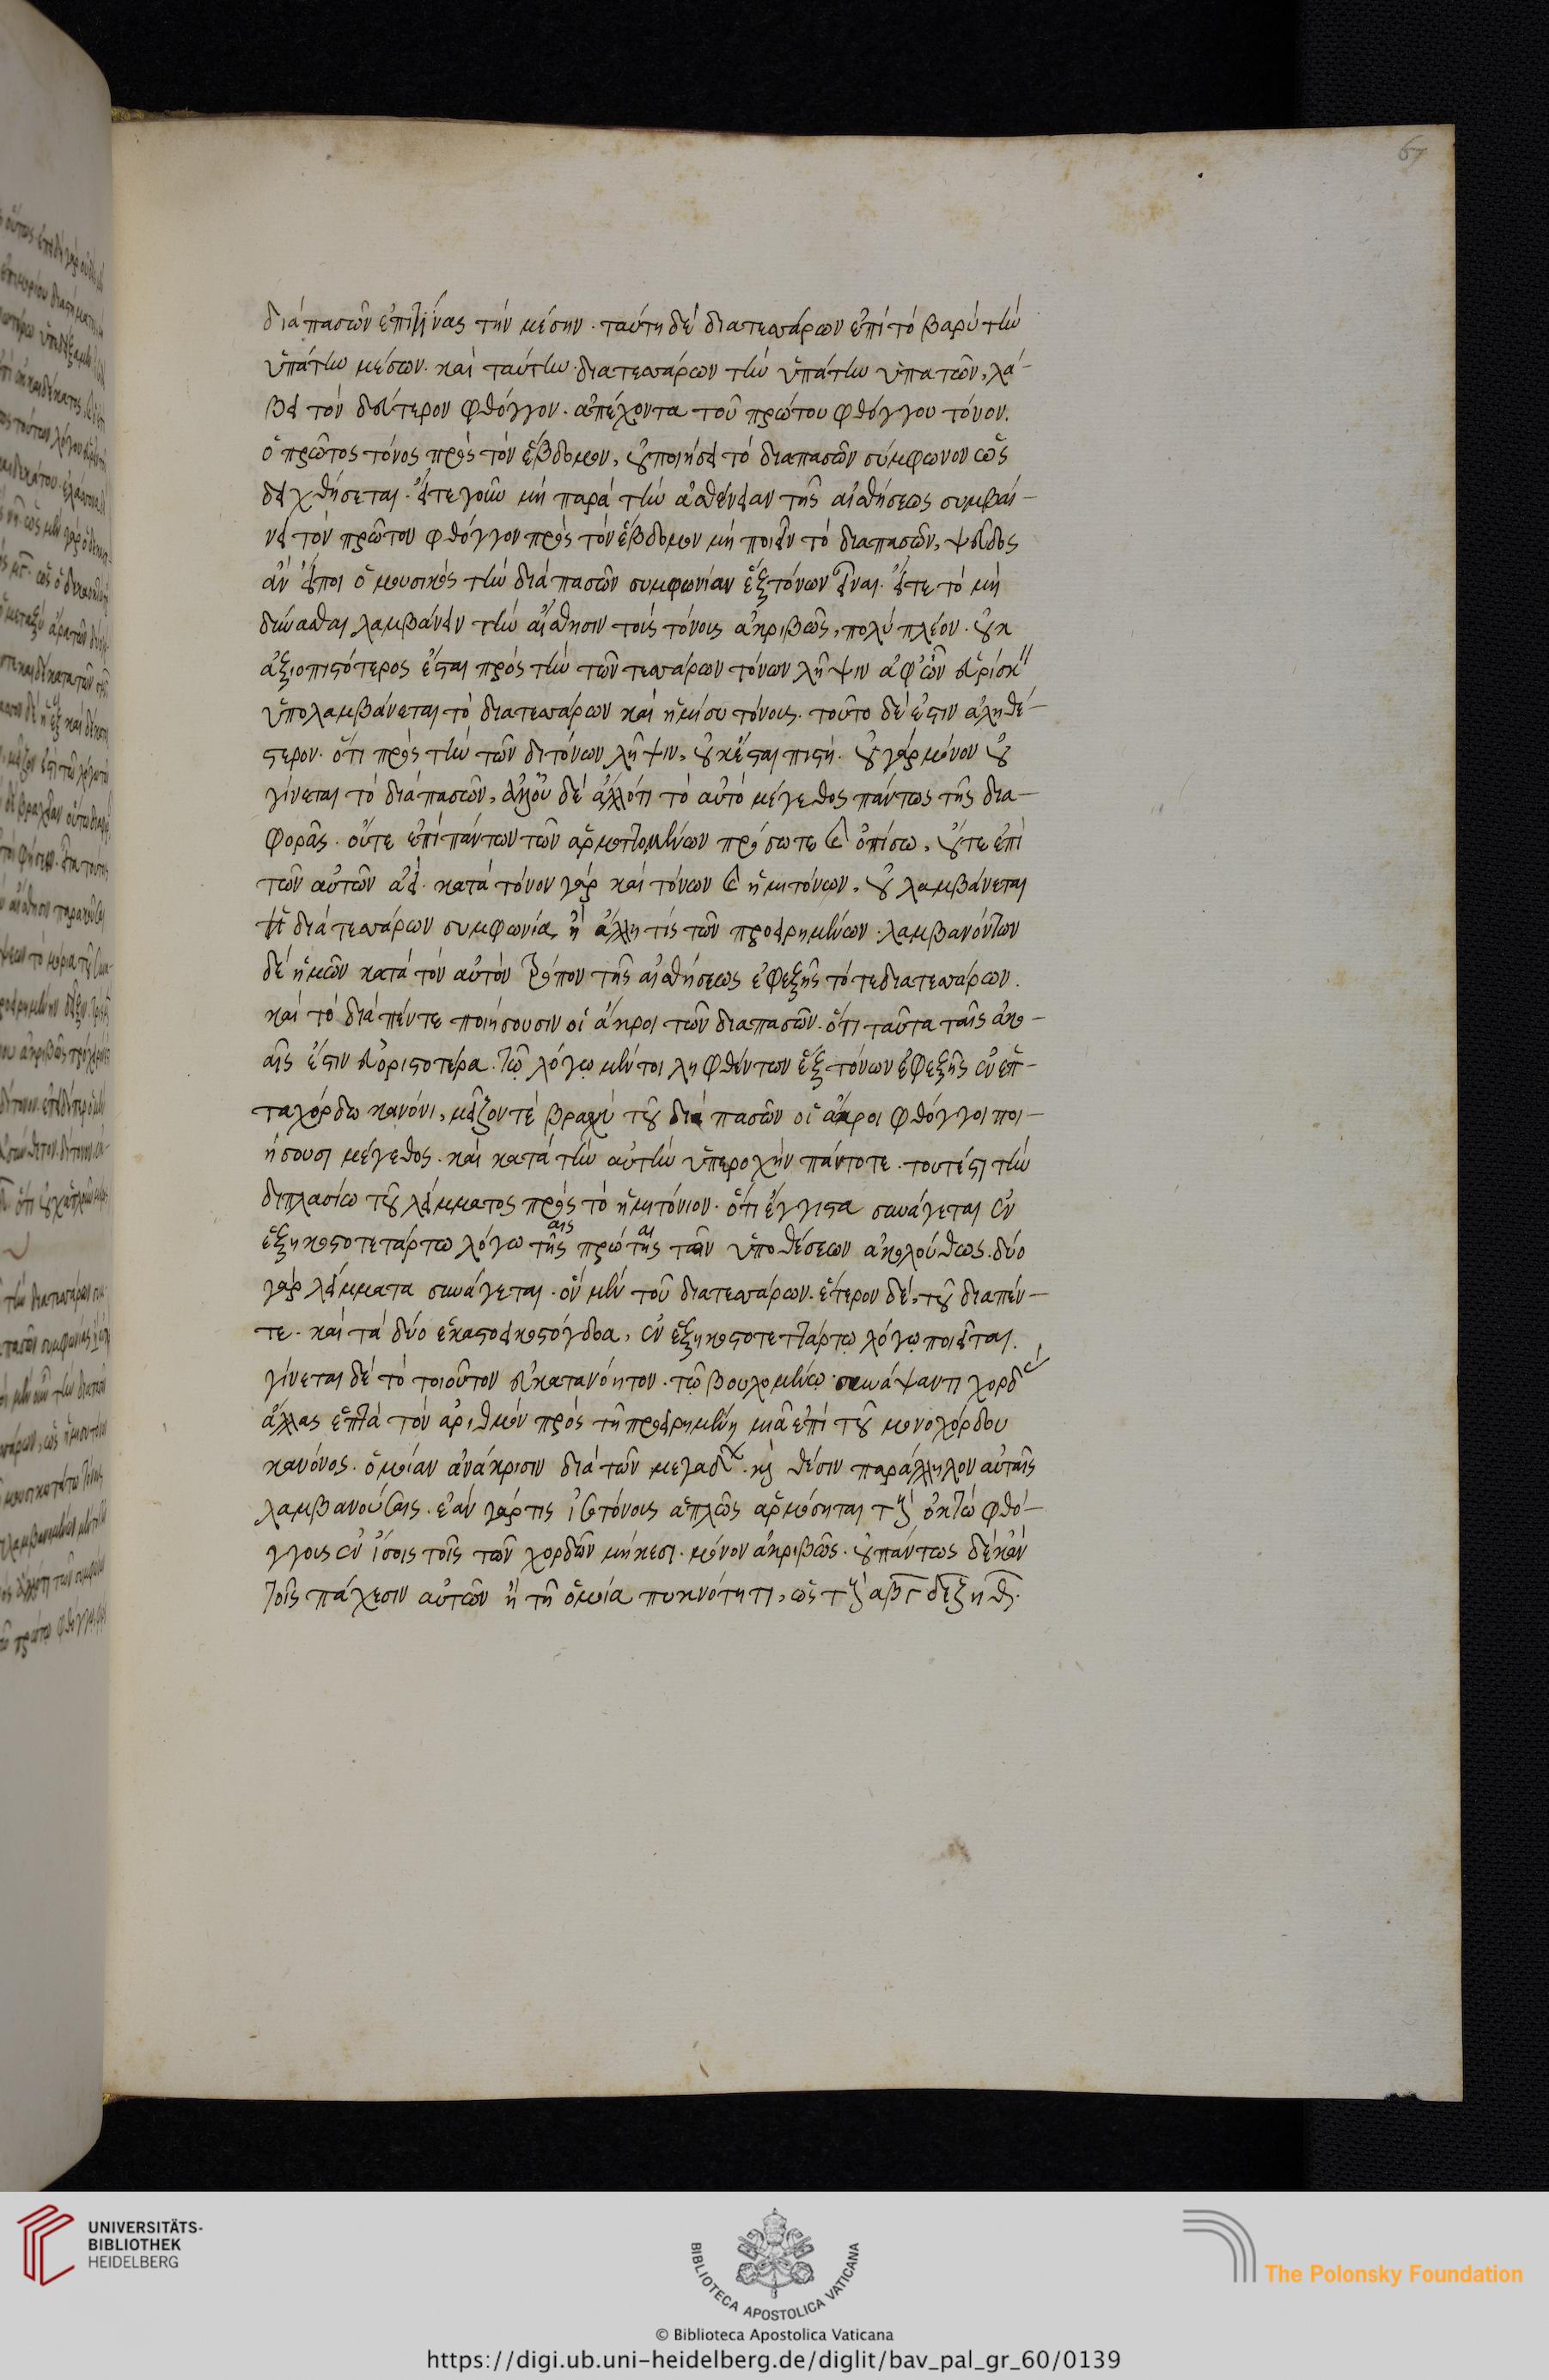 67
διά πασῶν ἐπιτείνας τὴν μέσην. ταύτη δὲ διατεσσάρων ἐπὶ τὸ βαρὺ τὴν
ὑπάτην μέσων. καὶ ταύτην διατεσσάρων τὴν ὑπάτην ὑπατῶν, λά-
βει τὸν δεύτερον φθόγγον. ἀπέχοντα τοῦ πρώτου φθόγγου τόνον.
ὁ πρῶτος τόνος πρὸς τὸν ἕβδομον, οὐ ποιήσει τὸ διαπασῶν σύμφωνον ὡς
δειχθήσεται. εἴτε γοῦν μὴ παρὰ τὴν ἀσθένειαν τῆς αἰσθήσεως συμβαί-
νει τὸν πρῶτον φθόγγον πρὸς τὸν ἕβδομον μὴ ποιεῖν τὸ διαπασῶν, ψεῦδος
ἂν εἴποι ὁ μουσικὸς τὴν διὰ πασῶν συμφωνίαν ἓξ τόνων εἶναι. εἴτε τὸ μὴ
δύνασθαι λαμβάνειν τὴν αἴσθησιν τοὺς τόνους ἀκριβῶς, πολὺ πλέον. οὐκ
ἀξιοπιστότερος ἔσται πρὸς τὴν τῶν τεσσάρων τόνων λῆψιν ἀφ' ὧν εὑρίσκ
ὑπολαμβάνεται τὸ διατεσσάρων καὶ ἥμισυ τόνους. τοῦτο δὲ ἐστιν ἀληθέ-
στερον. ὅτι πρὸς τὴν τῶν διτόνων λῆψιν, οὐκ ἔσται πιστή. οὐ γὰρ μόνον οὐ
γίνεται τὸ διὰ πασῶν, δὲ ἀλλ' ὅτι τὸ αὐτὸ μέγεθος πάντως τῆς δια-
φορᾶς. οὔτε ἐπὶ πάντων τῶν ἁρμοττομένων πρόσω τε καὶ ὀπίσω, οὔτε ἐπὶ
τῶν αὐτῶν ἀεί. κατὰ τόνον γὰρ καὶ τόνων καὶ ἡμιτόνων, οὐ λαμβάνεται
ἡ διὰ τεσσάρων συμφωνία, ἢ ἄλλη τις τῶν προειρημένων. λαμβανόντων
δὲ ἡμῶν κατὰ τὸν αὐτὸν τρόπον τῆς αἰσθήσεως ἐφεξῆς τό τε διατεσσάρων.
καὶ τὸ διὰ πέντε ποιήσουσιν οἱ ἄκροι τῶν διαπασῶν. ὅτι ταῦτα ταῖς ἀκο-
αῖς ἐστιν εὐοριστότερα. τῷ λόγῳ μέντοι ληφθέντων ἓξ τόνων ἐφεξῆς ἐν ἑπ-
ταχόρδω κανόνι, μεῖζον τε βραχὺ τοῦ διὰ πασῶν οἱ ἄκροι φθόγγοι ποι-
ήσουσι μέγεθος. καὶ κατὰ τὴν αὐτὴν ὑπεροχὴν πάντοτε. τουτέστι τὴν
διπλασίω τοῦ λείμματος πρὸς τὸ ἡμιτόνιον. ὅτι ἔγγιστα συνάγεται ἐν
ἑξηκοστοτετάρτω λόγω ταῖς πρώταις τῶν ὑποθέσεων ἀκολούθως. δύο
γὰρ λείμματα συνάγεται. ὃν μὲν τοῦ διατεσσάρων. ἕτερον δέ, τοῦ διαπέν-
τε. καὶ τὰ δύο ἑκαστοεικοστόγδοα, ἐν ἑξηκοστοτετάρτῳ λόγῳ ποιεῖται.
γίνεται δὲ τὸ τοιοῦτον εὐκατανόητον. τῷ βουλομένῳ συνάψαντι χορδὰς
ἄλλας ἑπτὰ τὸν ἀριθμὸν πρὸς τῇ προειρημένῃ μιᾷ ἐπὶ τοῦ μονοχόρδου
κανόνος. ὁμοίαν ἀνάκρισιν διὰ τῶν μαγάδων. καὶ θέσιν παράλληλον αὐταῖς
λαμβανούσαις. ἐὰν γάρ τις ἰσοτόνους ἁπλῶς ἁρμόσηται τοὺς ὀκτὼ φθό-
γγους ἐν ἴσοις τοῖς τῶν χορδῶν μήκεσι. μόνον ἀκριβῶς. οὐ πάντως δὲ κἂν
τοῖς πάχεσιν αὐτῶν ἢ τῇ ὁμοία πυκνότητι, ὡς τοὺς α β γ δ ε ζ η θ.
UNIVERSITÄTS-
BIBLIOTHEK
HEIDELBERG
BIBLIOTECA APOSTOLICA VATICANA
The Polonsky Foundation
© Biblioteca Apostolica Vaticana
https://digi.ub.uni-heidelberg.de/diglit/bav_pal_gr_60/0139